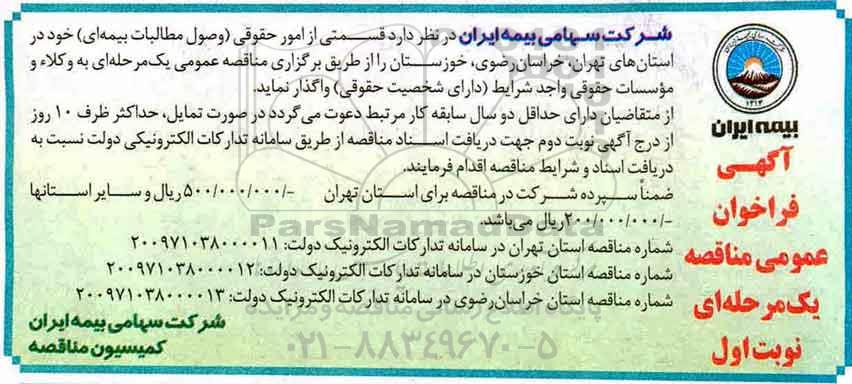 شرکت سهامی بیمه ایران در نظر دارد قسمتی از امور حقوقی (وصول مطالبات بیمه‌ای) خود در
استان‌های تهران، خراسان رضوی، خوزستان را از طریق برگزاری مناقصه عمومی یک‌مرحله‌ای به وکلاء و
مؤسسات حقوقی واجد شرایط (دارای شخصیت حقوقی) واگذار نماید.
از متقاضیان دارای حداقل دو سال سابقه کار مرتبط دعوت می‌گردد در صورت تمایل، حداکثر ظرف ۱۰ روز
از درج آگهی نوبت دوم جهت دریافت اسناد مناقصه از طریق سامانه تدارکات الکترونیکی دولت نسبت به
دریافت اسناد و شرایط مناقصه اقدام فرمایند.
ضمناً سپرده شرکت در مناقصه برای استان تهران -/۵۰۰/۰۰۰/۰۰۰ ریال و سایر استانها
-/۲۰۰/۰۰۰/۰۰۰ ریال می‌باشد.
شماره مناقصه استان تهران در سامانه تدارکات الکترونیک دولت: ۲۰۰۹۷۱۰۳۸۰۰۰۰۱۱
شماره مناقصه استان خوزستان در سامانه تدارکات الکترونیک دولت: ۲۰۰۹۷۱۰۳۸۰۰۰۰۱۲
شماره مناقصه استان خراسان‌رضوی در سامانه تدارکات الکترونیک دولت: ۲۰۰۹۷۱۰۳۸۰۰۰۰۱۳
شرکت سهامی بیمه ایران
کمیسیون مناقصه
۱۳۱۴
بیمه ایران
آگهی
فراخوان
عمومی مناقصه
یک‌مرحله‌ای
نوبت اول
ParsNamadData
پایگاه اطلاع رسانی مناقصه و مزایده
۰۲۱-۸۸۳۴۹۶۷۰-۵